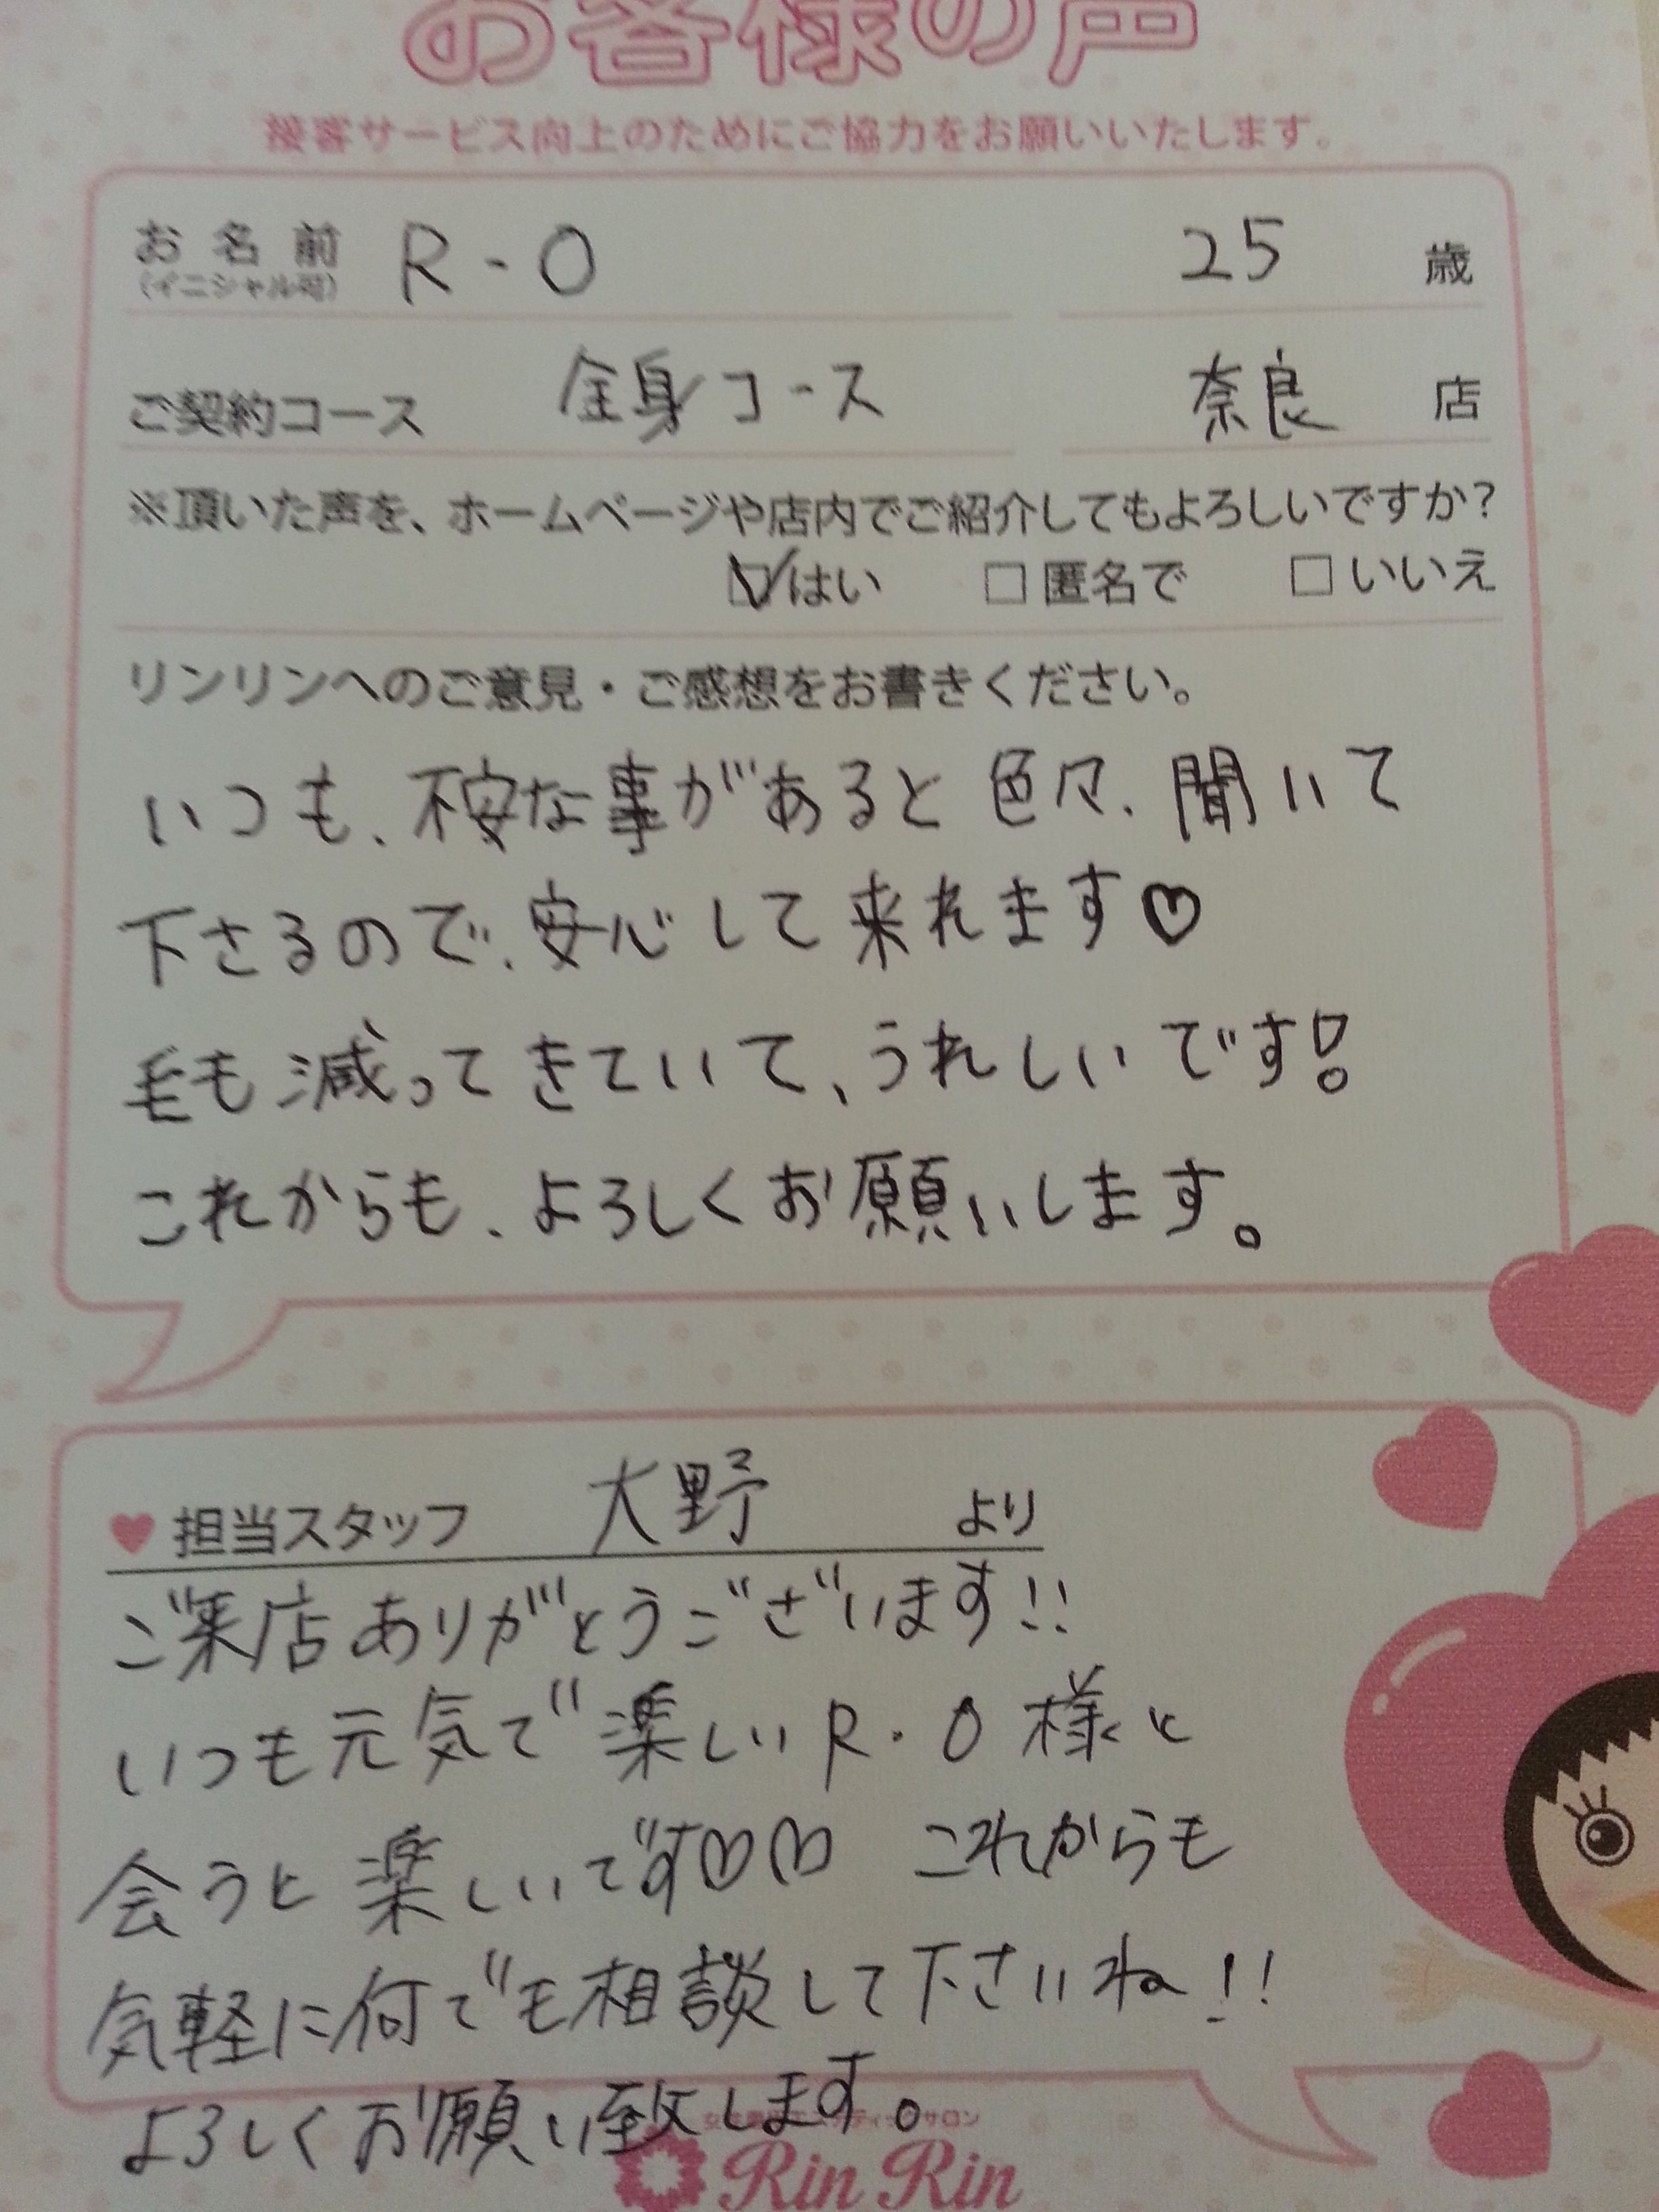 お客様の声
接客サービス向上のためにご協力をお願いいたします。
お名前 R-O 25 歳
(イニシャル可)
ご契約コース 全身コース 奈良 店
※頂いた声を、ホームページや店内でご紹介してもよろしいですか?
はい □匿名で □いいえ
リンリンへのご意見・ご感想をお書きください。
いつも、不安な事があると色々、聞いて
下さるので、安心して来れます♡
毛も減ってきていて、うれしいです!
これからも、よろしくお願いします。
♥担当スタッフ 大野 より
ご来店ありがとうございます!!
いつも元気で楽しいR・O様と
会うと楽しいです♡♡ これからも
気軽に何でも相談して下さいね!!
よろしくお願い致します。
Rin Rin